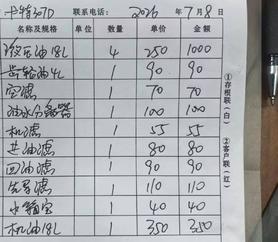 卡特307D 联系电话: 2026 年 7 月 8 日
名称及规格 单位 数量 单价 金额
液压油18L 4 250 1000
齿轮油4L 1 90 90
空滤 1 70 70
油水分离器 1 100 100
机滤 1 55 55
柴油滤 1 80 80
回油滤 1 90 90
先导滤 1 110 110
水箱宝 1 40 40
机油18L 1 350 350
①存根联(白)
②客户联(红)